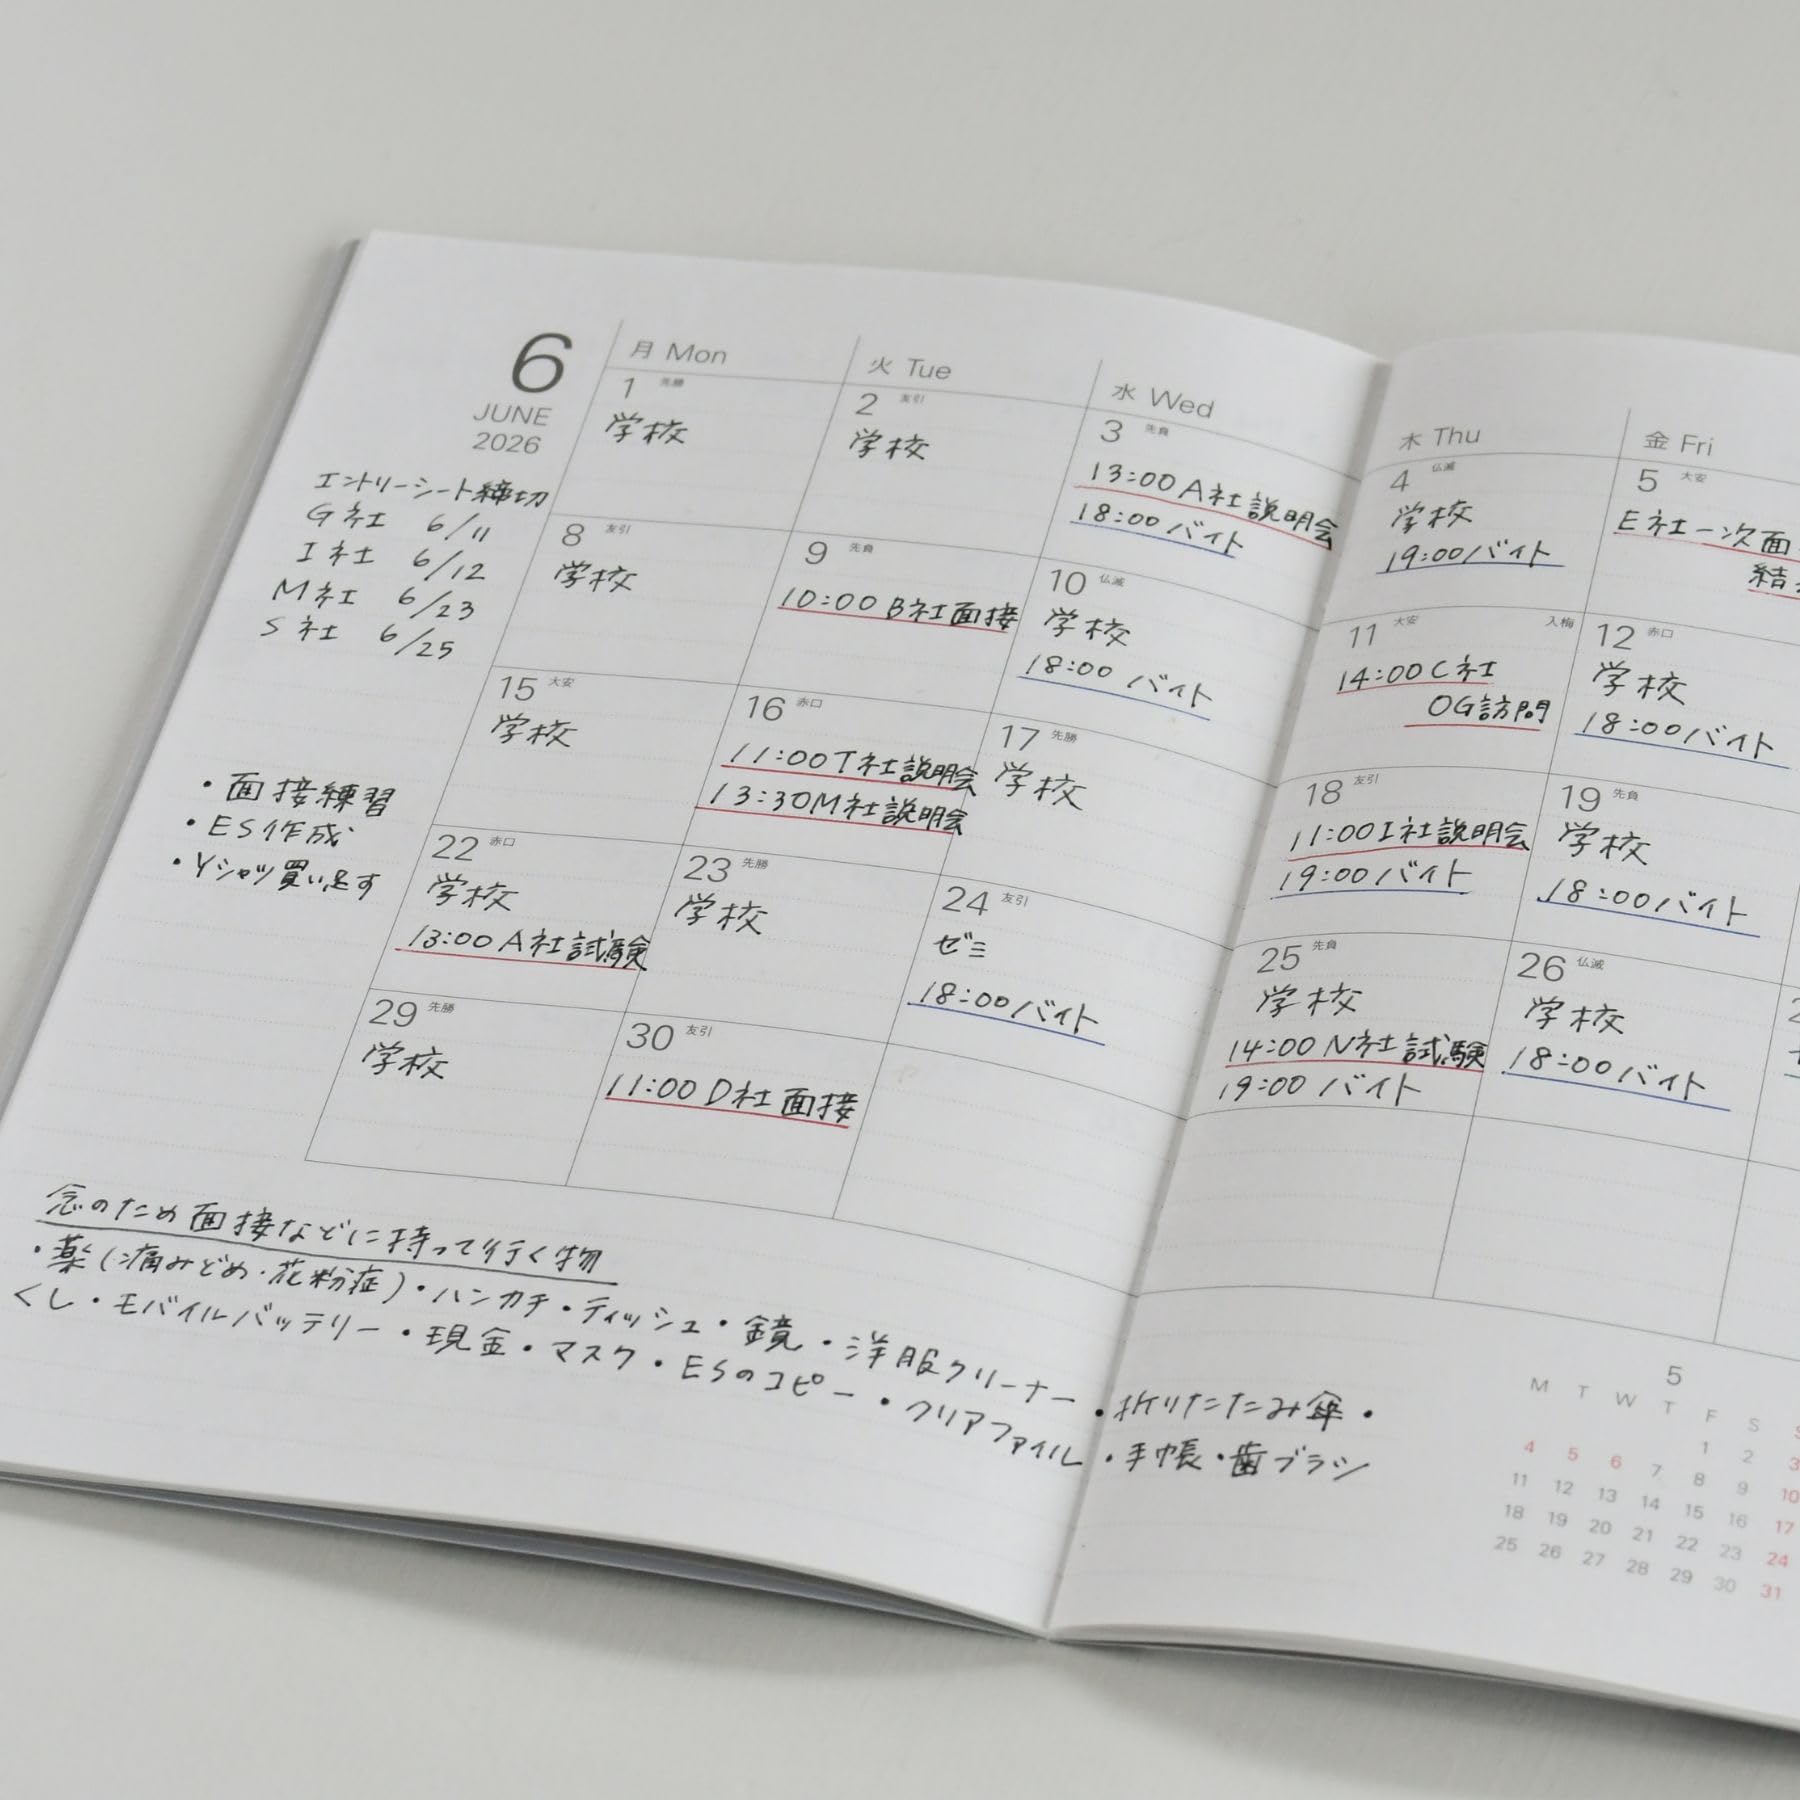 6
JUNE
2026
エントリーシート締切
G社 6/11
I社 6/12
M社 6/23
S社 6/25
・面接練習
・ES作成
・Yシャツ買い足す
月 Mon
火 Tue
水 Wed
木 Thu
金 Fri
1 先勝
学校
2 友引
学校
3 先負
13:00 A社説明会
18:00 バイト
4 仏滅
学校
19:00バイト
5 大安
E社一次面
結
8 友引
学校
9 先負
10:00 B社面接
10 仏滅
学校
18:00 バイト
11 大安 入梅
14:00 C社
OG訪問
12 赤口
学校
18:00バイト
15 大安
学校
16 赤口
11:00 T社説明会
13:30 M社説明会
17 先勝
学校
18 友引
11:00 I社説明会
19:00 バイト
19 先負
学校
18:00バイト
22 赤口
学校
13:00 A社試験
23 先勝
学校
24 友引
ゼミ
18:00バイト
25 先負
学校
14:00 N社試験
19:00 バイト
26 仏滅
学校
18:00バイト
29 先勝
学校
30 友引
11:00 D社面接
念のため面接などに持って行く物
・薬(痛みどめ・花粉症)・ハンカチ・ティッシュ・鏡・洋服クリーナー・折りたたみ傘・
くし・モバイルバッテリー・現金・マスク・ESのコピー・クリアファイル・手帳・歯ブラシ
5
M T W T F S S
1 2 3
4 5 6 7 8 9 10
11 12 13 14 15 16 17
18 19 20 21 22 23 24
25 26 27 28 29 30 31